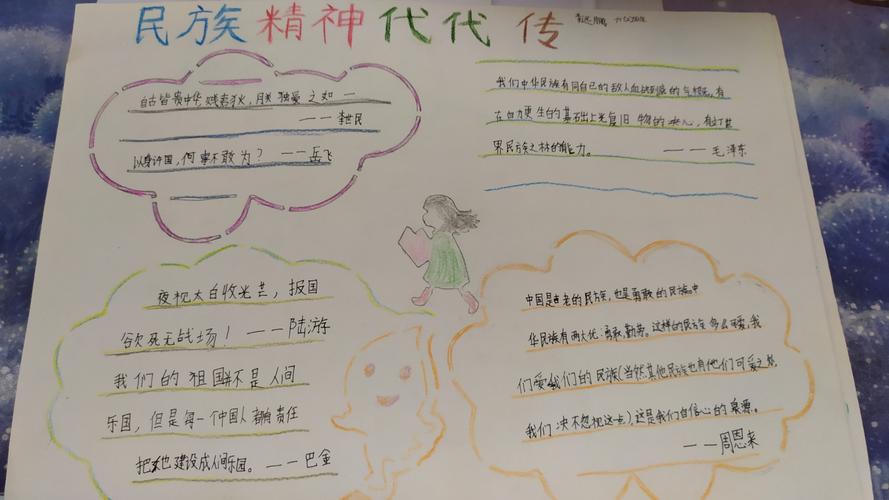 民族精神代代传
自古皆贵中华贱夷狄，朕独爱之如一
——李世民
以身许国，何事不敢为？——岳飞
我们中华民族有同自己的敌人血战到底的气概，有
在自力更生的基础上光复旧物的决心，有
界民族之林的能力。——毛泽东
夜视太白收光芒，报国
欲死无战场！——陆游
我们的祖国并不是人间
乐园，但是每一个中国人都有责任
把她建设成人间乐园。——巴金
中国是古老的民族，也是勇敢的民族。中
华民族有两大优：勇敢勤劳。这样的民族多么可爱，我
们爱我们的民族（当然其他民族也有他们可爱之处，
我们决不忽视这一点），这是我们自信心的泉源。
——周恩来